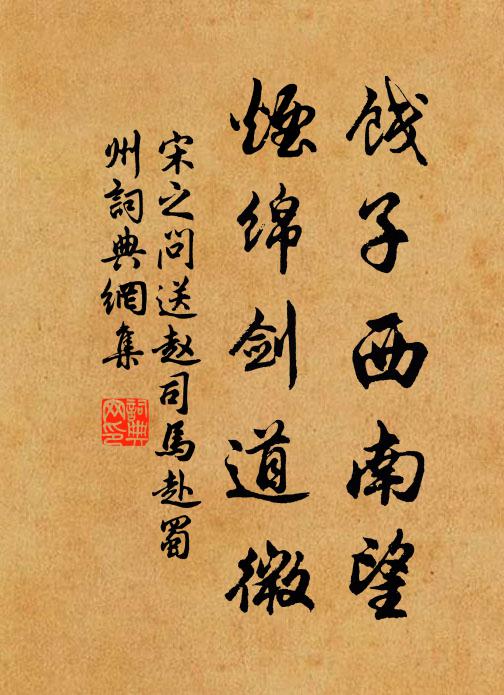 饯子西南望
烟绵剑道微
宋之问送赵司马赴蜀
州词典网集
词典
网印